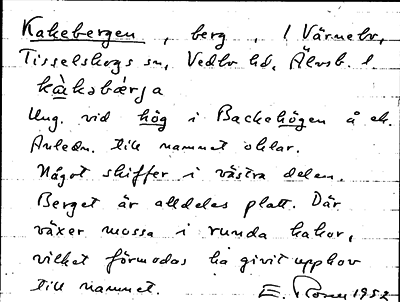 Kakebergen, berg, i Värnebv,
Tisselskogs sn, Vedbo hd, Älvsb. l.
kàkəbǽrja
Ung. vid hög i Backehögen å ek.
Anledn. till namnet oklar.
Något skiffer i västra delen.
Berget är alldeles platt. Där
växer mossa i runda kakor,
vilket förmodas ha givit upphov
till namnet. E. 1952